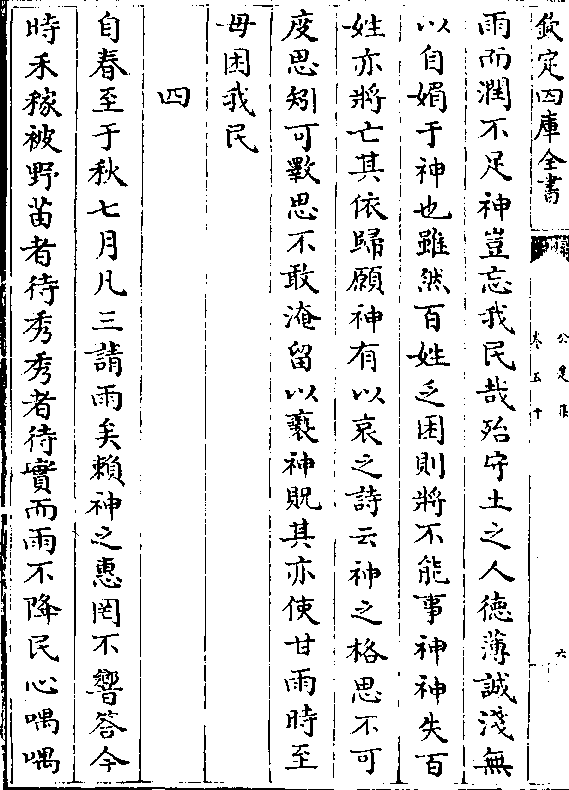 欽定四庫全書
卷五十
六
雨而潤不足神豈忘我民哉殆守土之人徳薄誠淺無
以自媚于神也雖然百姓乏困則將不能事神神失百
姓亦將亡其依歸願神有以哀之詩云神之格思不可
度思矧可斁思不敢淹留以䙝神貺其亦使甘雨時至
毋困我民
四
自春至于秋七月凡三請雨矣賴神之惠罔不響答今
時禾稼被野苗者待秀秀者待實而雨不降民心喁喁